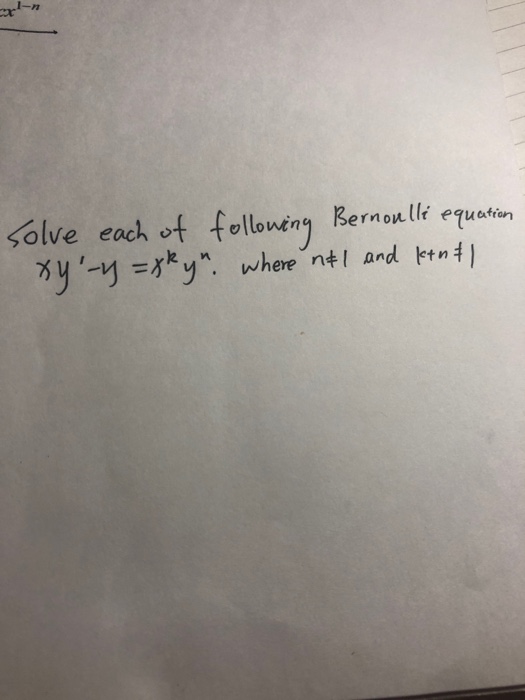 cx^{1-n}
Solve each of following Bernoulli equation
xy'-y = x^k y^n. where n≠1 and k+n≠1